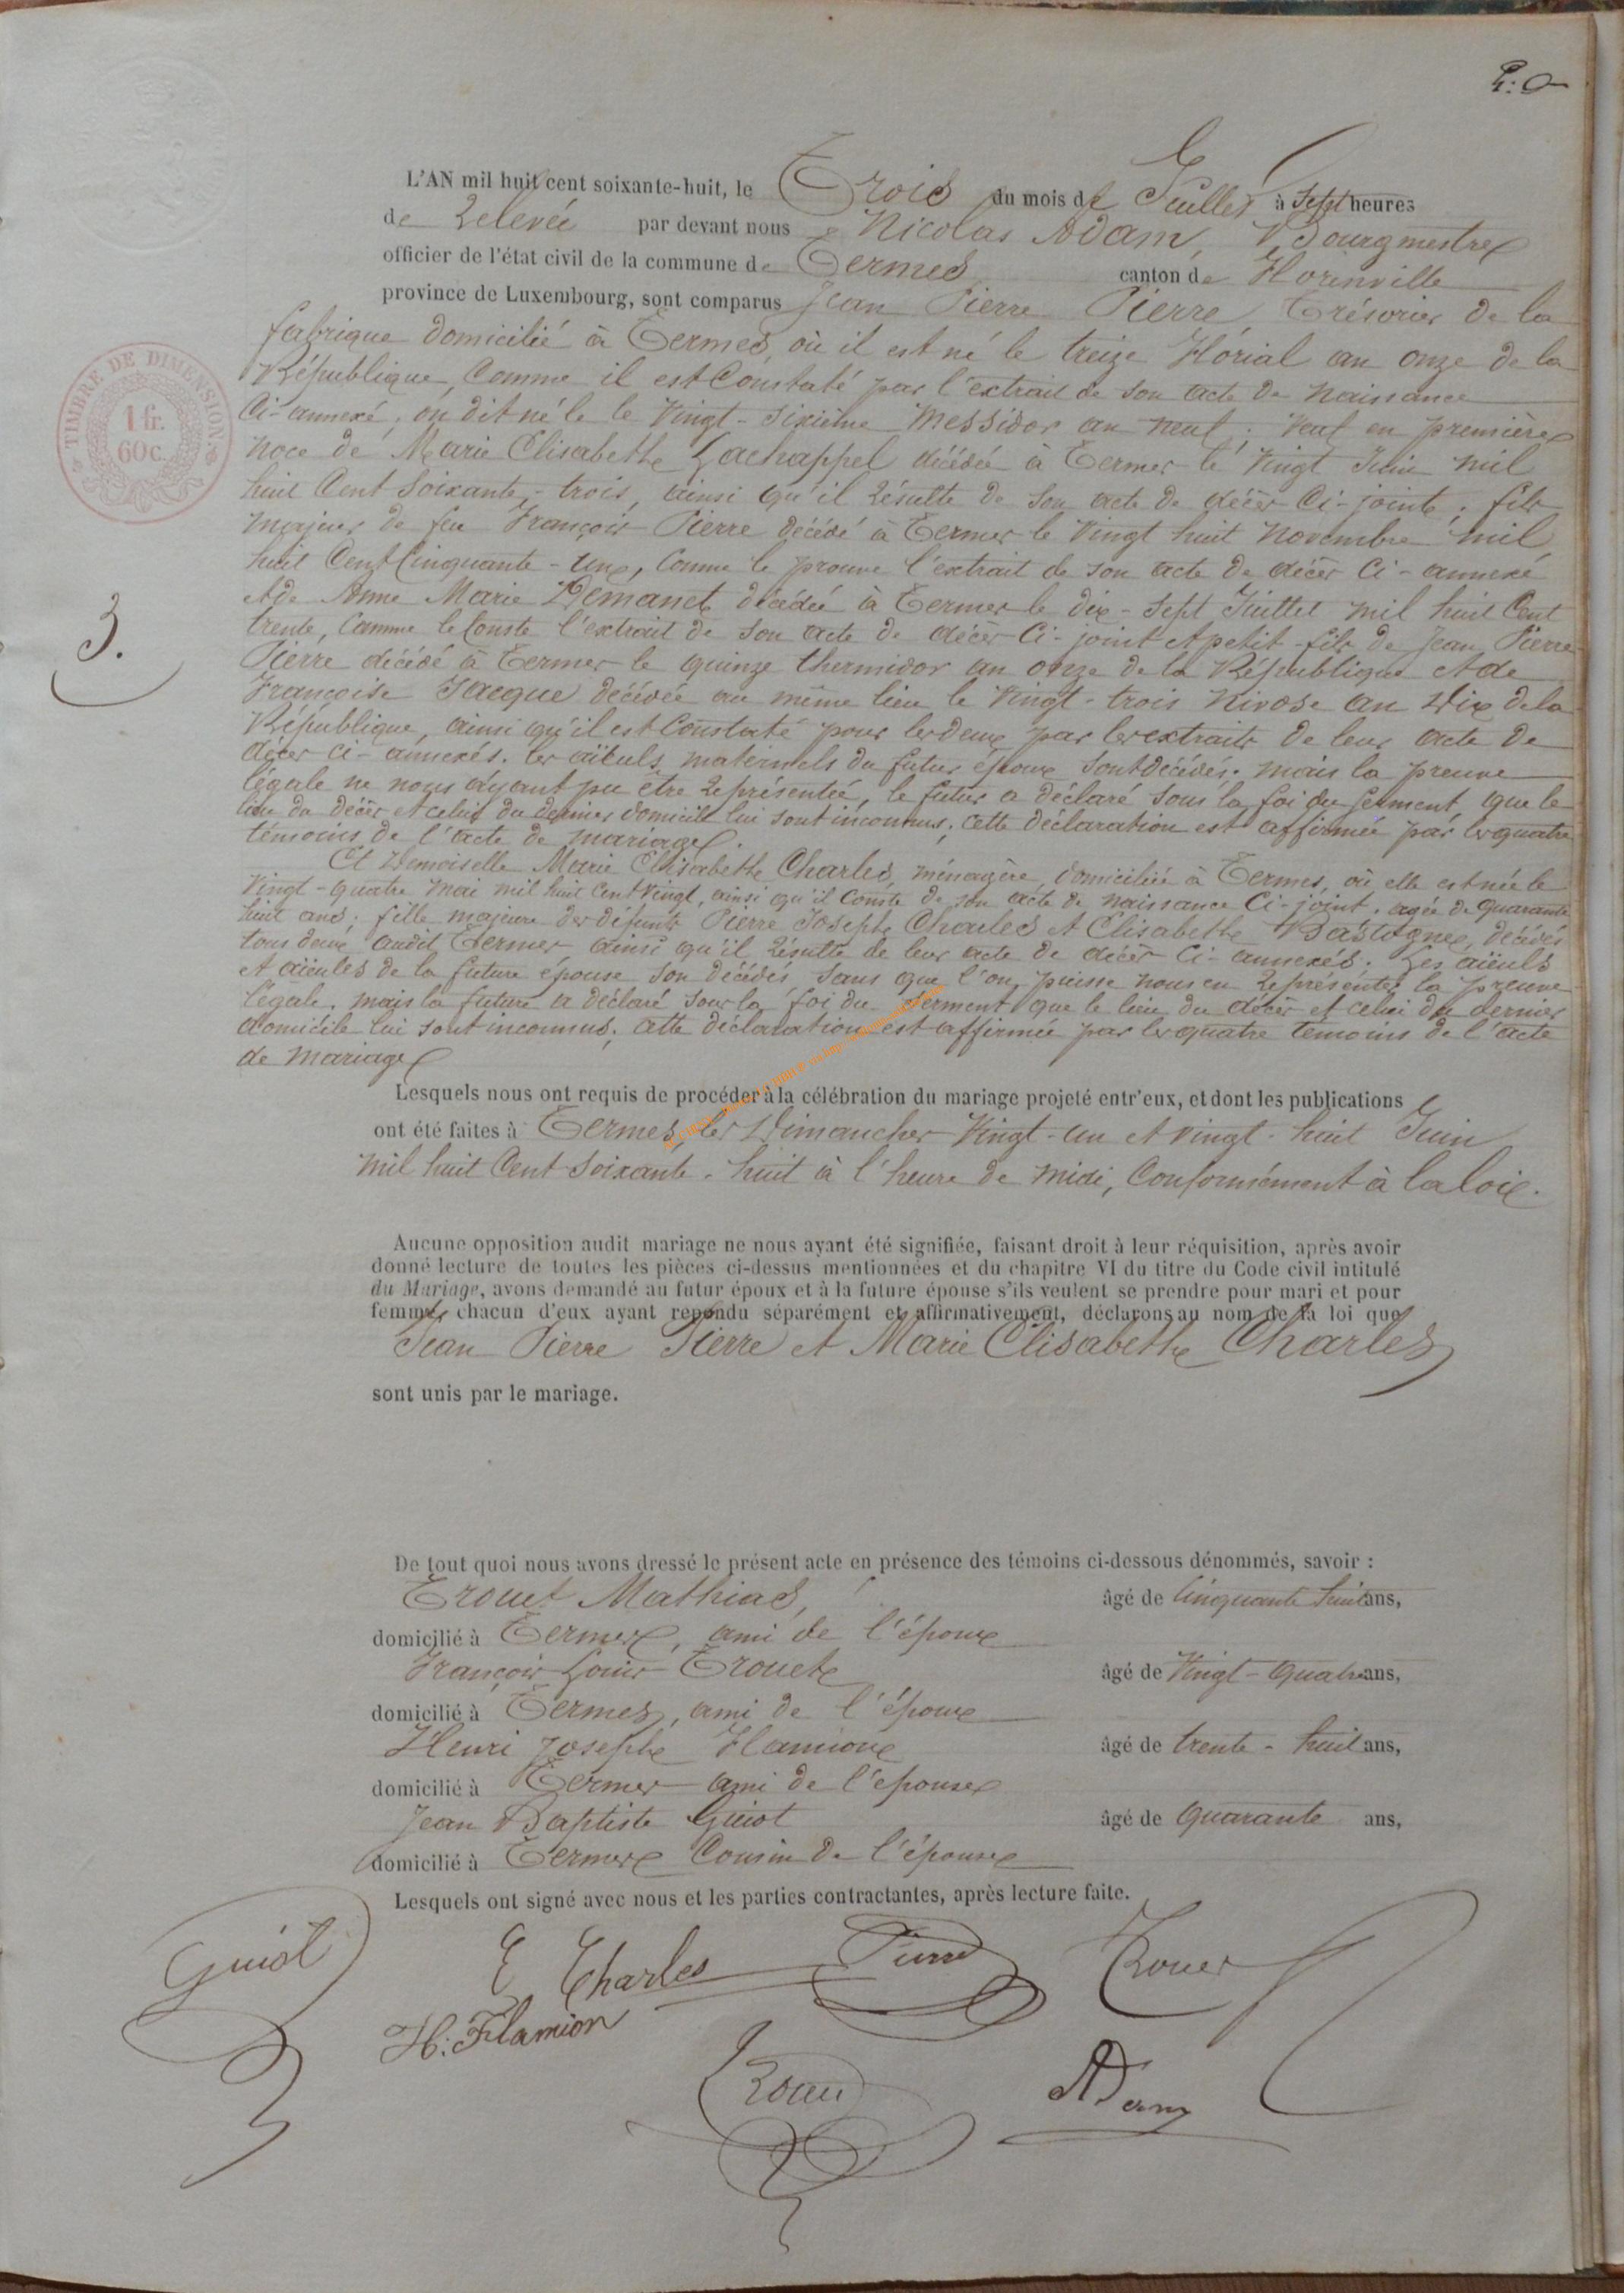 L'AN mil huit cent soixante-huit, le Trois du mois de Juillet à Sept heures
de Relevée par devant nous Nicolas Adam, Bourgmestre
officier de l'état civil de la commune de Termes canton de Florenville
province de Luxembourg, sont comparus Jean Pierre Pierre, Trésorier de la
fabrique domicilié à Termes, où il est né le treize Florial an onze de la
République, Comme il est Constaté par l'extrait de son acte de naissance
Ci-annexé, on dit né le le Vingt-sixième Messidor an neuf; veuf en première
noce de Marie Elisabethe Lachappel décédée à Termes le Vingt Juin mil
huit Cent Soixante-trois, ainsi qu'il résulte de son acte de décès Ci-jointe, fils
majeur de feu François Pierre décédé à Termes le Vingt huit Novembre mil
huit Cent Cinquante-une, Comme le prouve l'extrait de son acte de décès Ci-annexé
Et de Anne Marie Demanet décédée à Termes le dix-sept Juillet mil huit Cent
trente, Comme le Conste l'extrait de son acte de décès Ci-joint Et petit-fils de Jean Pierre
Pierre décédé à Termes le quinze thermidor an onze de la République Et de
Françoise Jacque décédée au même lieu le Vingt-trois Nivose an Dix de la
République, ainsi qu'il est Constaté pour les deux par les extraits de leur acte de
décès Ci-annexés. les aïeuls maternels du futur époux sont décédés; mais la preuve
légale ne nous ayant pu être représentée, le futur a déclaré sous la foi du serment, que le
lieu du décès et celui du dernier domicile lui sont inconnus; Cette déclaration est affirmée par les quatre
témoins de l'acte de mariage.
Et Demoiselle Marie Elisabethe Charles, ménagère, domiciliée à Termes, où elle est née le
Vingt-quatre mai mil huit Cent Vingt, ainsi qu'il Conste de son acte de naissance Ci-joint. agée de Quarante
huit ans; fille majeure des défunts Pierre Josephe Charles Et Elisabethe Bastogne, décédés
tous deux audit Termes, ainsi qu'il résulte de leur acte de décès Ci-annexés. Les aïeuls
et aïeules de la future épouse son décédés sans que l'on puisse nous en représenter la preuve
légale. mais la future a déclaré sous la foi du serment que le lieu du décès et celui du dernier
domicile lui sont inconnus; Cette déclaration est affirmée par les quatre témoins de l'acte
de mariage
Lesquels nous ont requis de procéder à la célébration du mariage projeté entr'eux, et dont les publications
ont été faites à Termes, les Dimanches Vingt-un et vingt-huit Juin
mil huit Cent Soixante-huit à l'heure de midi, Conformément à la loi.
Aucune opposition audit mariage ne nous ayant été signifiée, faisant droit à leur réquisition, après avoir
donné lecture de toutes les pièces ci-dessus mentionnées et du chapitre VI du titre du Code civil intitulé
du Mariage, avons demandé au futur époux et à la future épouse s'ils veulent se prendre pour mari et pour
femme, chacun d'eux ayant repondu séparément et affirmativement, déclarons au nom de la loi que
Jean Pierre Pierre et Marie Elisabethe Charles
sont unis par le mariage.
3.
TIMBRE DE DIMENSION.
1 fr.
60 c.
De tout quoi nous avons dressé le présent acte en présence des témoins ci-dessous dénommés, savoir :
Trouet Mathias, âgé de Cinquante huit ans,
domicilié à Termes, ami de l'époux
François Louis Trouet âgé de Vingt-Quatre ans,
domicilié à Termes, ami de l'époux
Henri Josephe Flamion âgé de trente-huit ans,
domicilié à Termes ami de l'épouse
Jean Baptiste Guiot âgé de Quarante ans,
domicilié à Termes Cousin de l'épouse
Lesquels ont signé avec nous et les parties contractantes, après lecture faite.
Guiot E Charles Pierre Trouet
H: Flamion
Adam